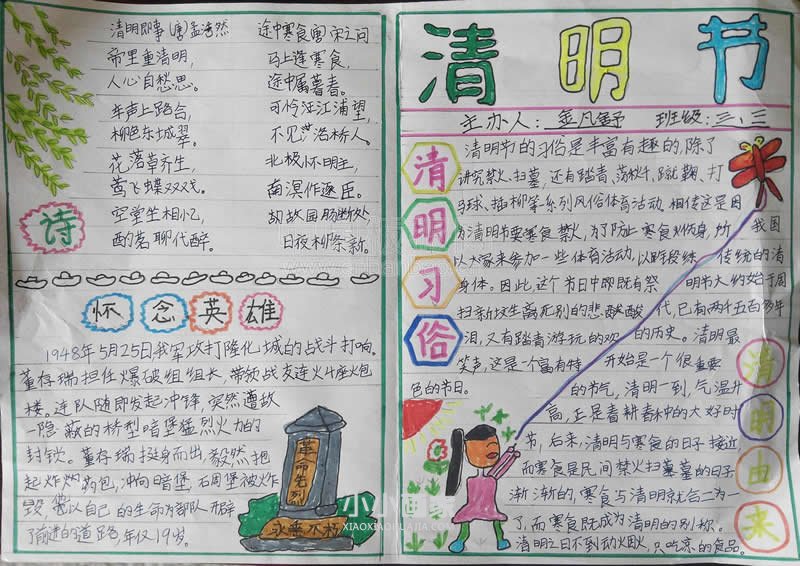 清明即事(唐)孟浩然
帝里重清明,
人心自愁思。
车声上路合,
柳色东城翠。
花落草齐生,
莺飞蝶双戏。
空堂坐相忆,
酌茗聊代醉。
途中寒食唐 宋之问
马上逢寒食,
途中属暮春。
可怜江浦望,
不见洛桥人。
北极怀明主,
南溟作逐臣。
故园肠断处,
日夜柳条新。
诗
怀念英雄
1948年5月25日我军攻打隆化城的战斗打响。
董存瑞担任爆破组组长,带领战友连火4座火包
楼。连队随即发起冲锋,突然遭敌
一隐蔽的桥型暗堡猛烈火力的
封锁。董存瑞挺身而出,毅然抱
起炸药包,冲向暗堡,
毁 他以自己的生命为部队开辟
了前进的道路 年仅19岁。
革命先烈
永垂不朽
清明节
主办人:金凡舒 班级:三、三
清明习俗
清明节的习俗是丰富有趣的,除了
讲究禁火、扫墓,还有踏青、荡秋千、蹴鞠、打
马球、插柳等系列风俗体育活动。相传这是因
为清明节要寒食禁火,为了防止寒食冷伤身,所
以大家来参加一些体育活动,以锻炼
身体。因此,这个节日中即既有祭
扫新坟生离死别的悲酸
泪,又有踏青游玩的欢
笑声,这是一个富有特
色的节日。
清明由来
我国
传统的清
明节大约始于周
代,已有两千五百多年
的历史。清明最
开始是一个很重要
的节气,清明一到,气温升
高,正是春耕春种的大好时
节,后来,清明与寒食的日子接近,
而寒食是民间禁火扫墓的日子
渐渐的,寒食与清明就合二为一
了,而寒食既成为清明的别称。
清明之日不到动烟火,只吃凉的食品。
小小画家
XIAOXIAOHUAJIA.COM